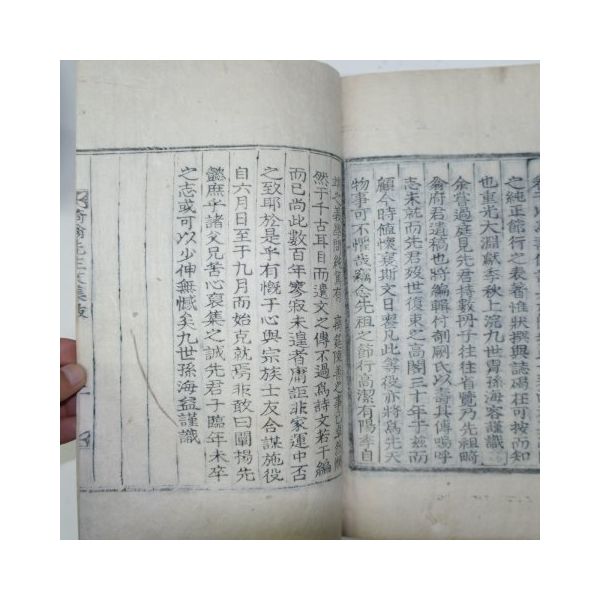 之純正館行之表著惟狀撰與誌碣在可按而知
也重光大淵獻季秋上浣九世胄孫海客謹識
余嘗過庭見先君持數冊子往往省覽乃先祖畸
翁府君遺稿也將編輯付剞劂氏以壽其傳嗚呼
志未就而先君歿世復束之高閣三十年于玆而
顧今時值懷襄斯文日喪凡此等役亦將爲先天
物事可不懼哉竊念先祖之節行高潔有陽秋自
然于十古耳目而遺文之傳不過爲詩文若干編
而已尚此數百年寥寂未遑者庸詎非家運中否
之致耶於是乎有慨于心與宗族士友合謀施役
自六月日至于九月而始克就焉非敢曰闡揚先
懿庶乎諸父兄苦心裒集之誠先君子臨年未卒
之志或可以少伸無憾矣九世孫海益謹識
翁先生文集